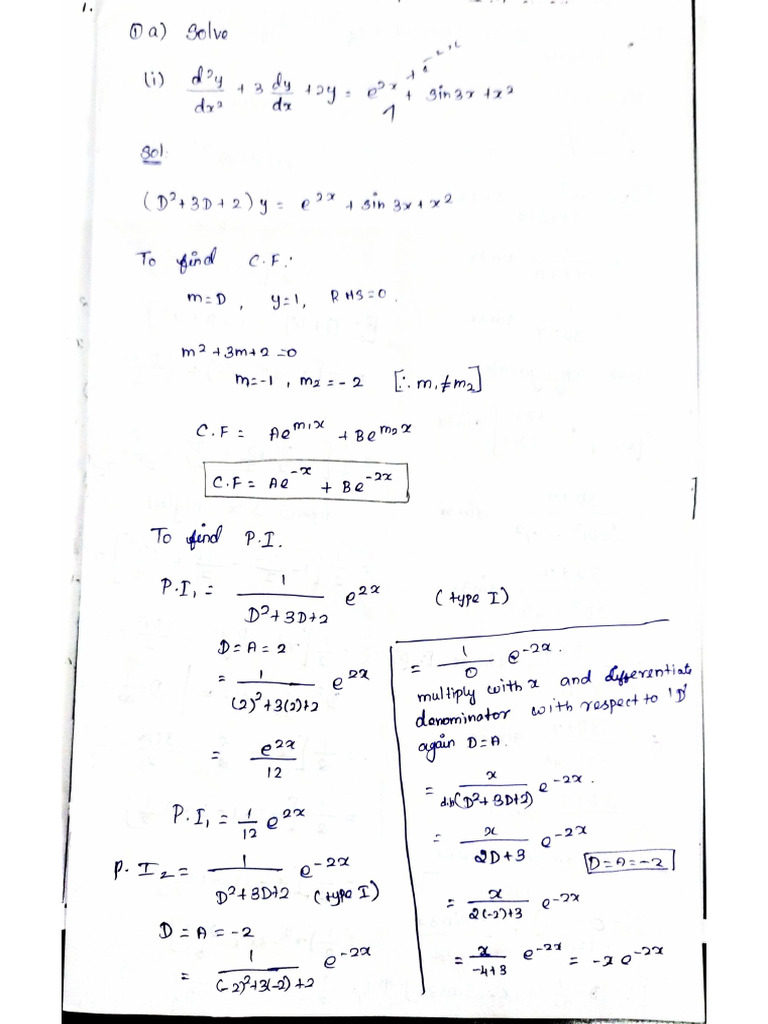 1.
① a) Solve
(i) d²y/dx² + 3 dy/dx + 2y = e^2x + e^-2x + sin3x + x²
Sol.
(D² + 3D + 2) y = e^2x + sin 3x + x²
To find C.F:
m = D, y = 1, RHS = 0.
m² + 3m + 2 = 0
m = -1, m2 = -2 [∵ m1 ≠ m2]
C.F = Ae^m1x + Be^m2x
C.F = Ae^-x + Be^-2x
To find P.I.
P.I1 = 1/(D² + 3D + 2) e^2x (type I)
D = A = 2
= 1/((2)² + 3(2) + 2) e^2x
= e^2x/12
P.I1 = 1/12 e^2x
P.I2 = 1/(D² + 3D + 2) e^-2x (type I)
D = A = -2
= 1/((-2)² + 3(-2) + 2) e^-2x
= 1/0 e^-2x.
multiply with x and differentiate
denominator with respect to 'D'
again D = A.
= x/(dif(D² + 3D + 2)) e^-2x.
= x/(2D + 3) e^-2x
D = A = -2
= x/(2(-2) + 3) e^-2x
= x/(-4 + 3) e^-2x = -x e^-2x